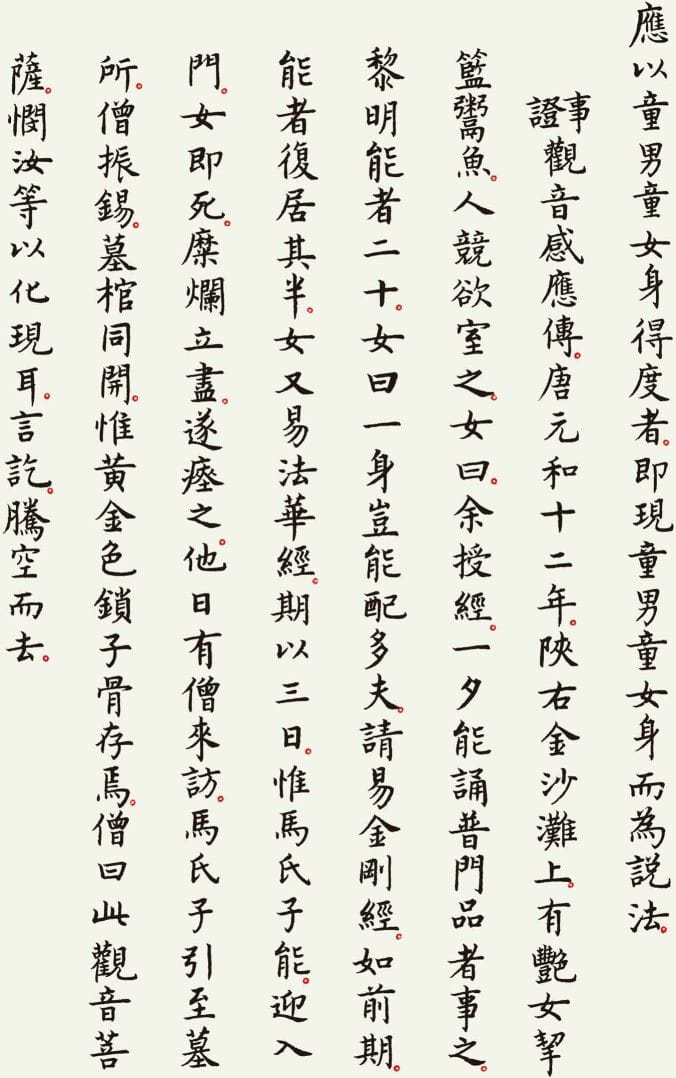 應以童男童女身得度者。即現童男童女身而為説法。
事證觀音感應傳。唐元和十二年。陝右金沙灘上。有艷女挈
籃鬻魚。人競欲室之。女曰。余授經。一夕能誦普門品者事之。
黎明能者二十。女曰一身豈能配多夫。請易金剛經。如前期。
能者復居其半。女又易法華經。期以三日。惟馬氏子能。迎入
門。女即死。糜爛立盡。遂瘞之。他日有僧來訪。馬氏子引至墓
所。僧振錫。墓棺同開。惟黃金色鎖子骨存焉。僧曰此觀音菩
薩。憫汝等以化現耳。言訖。騰空而去。